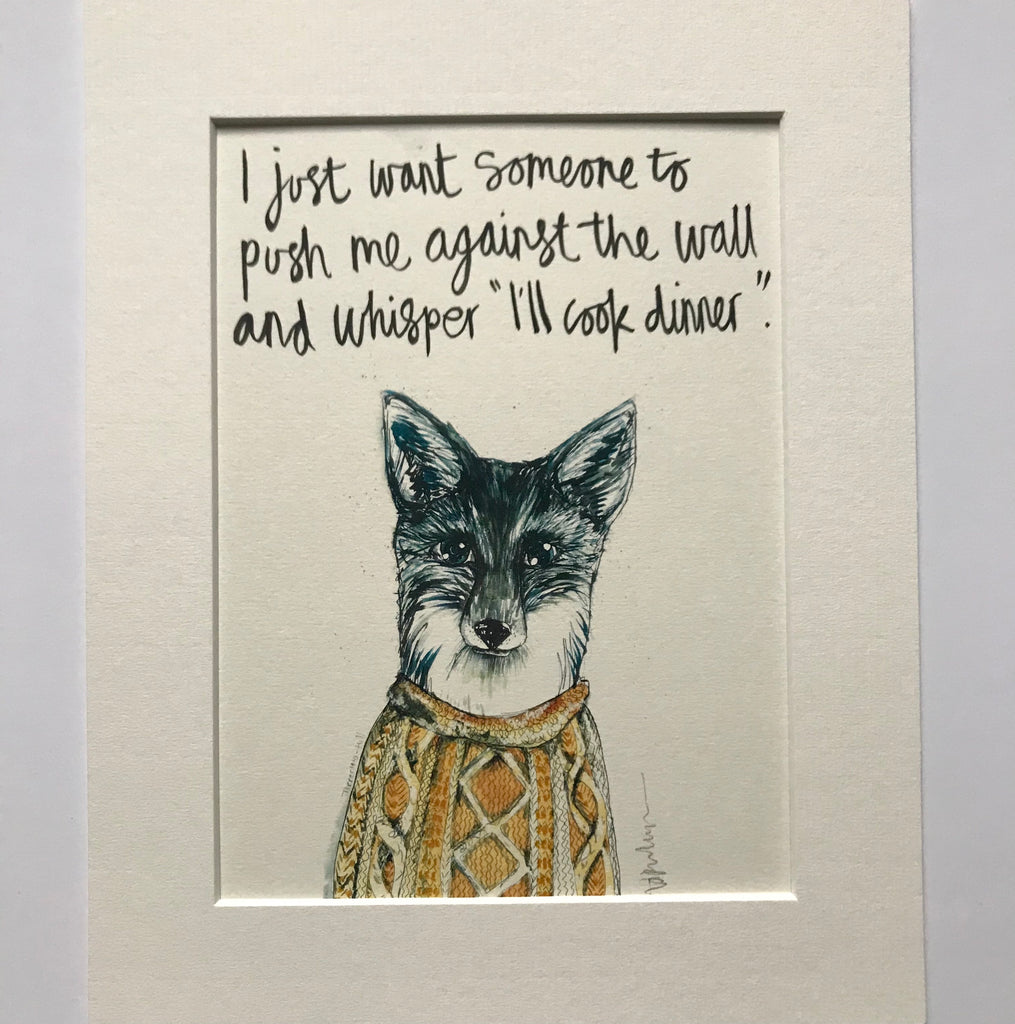 I just want someone to
push me against the wall
and whisper "I'll cook dinner".